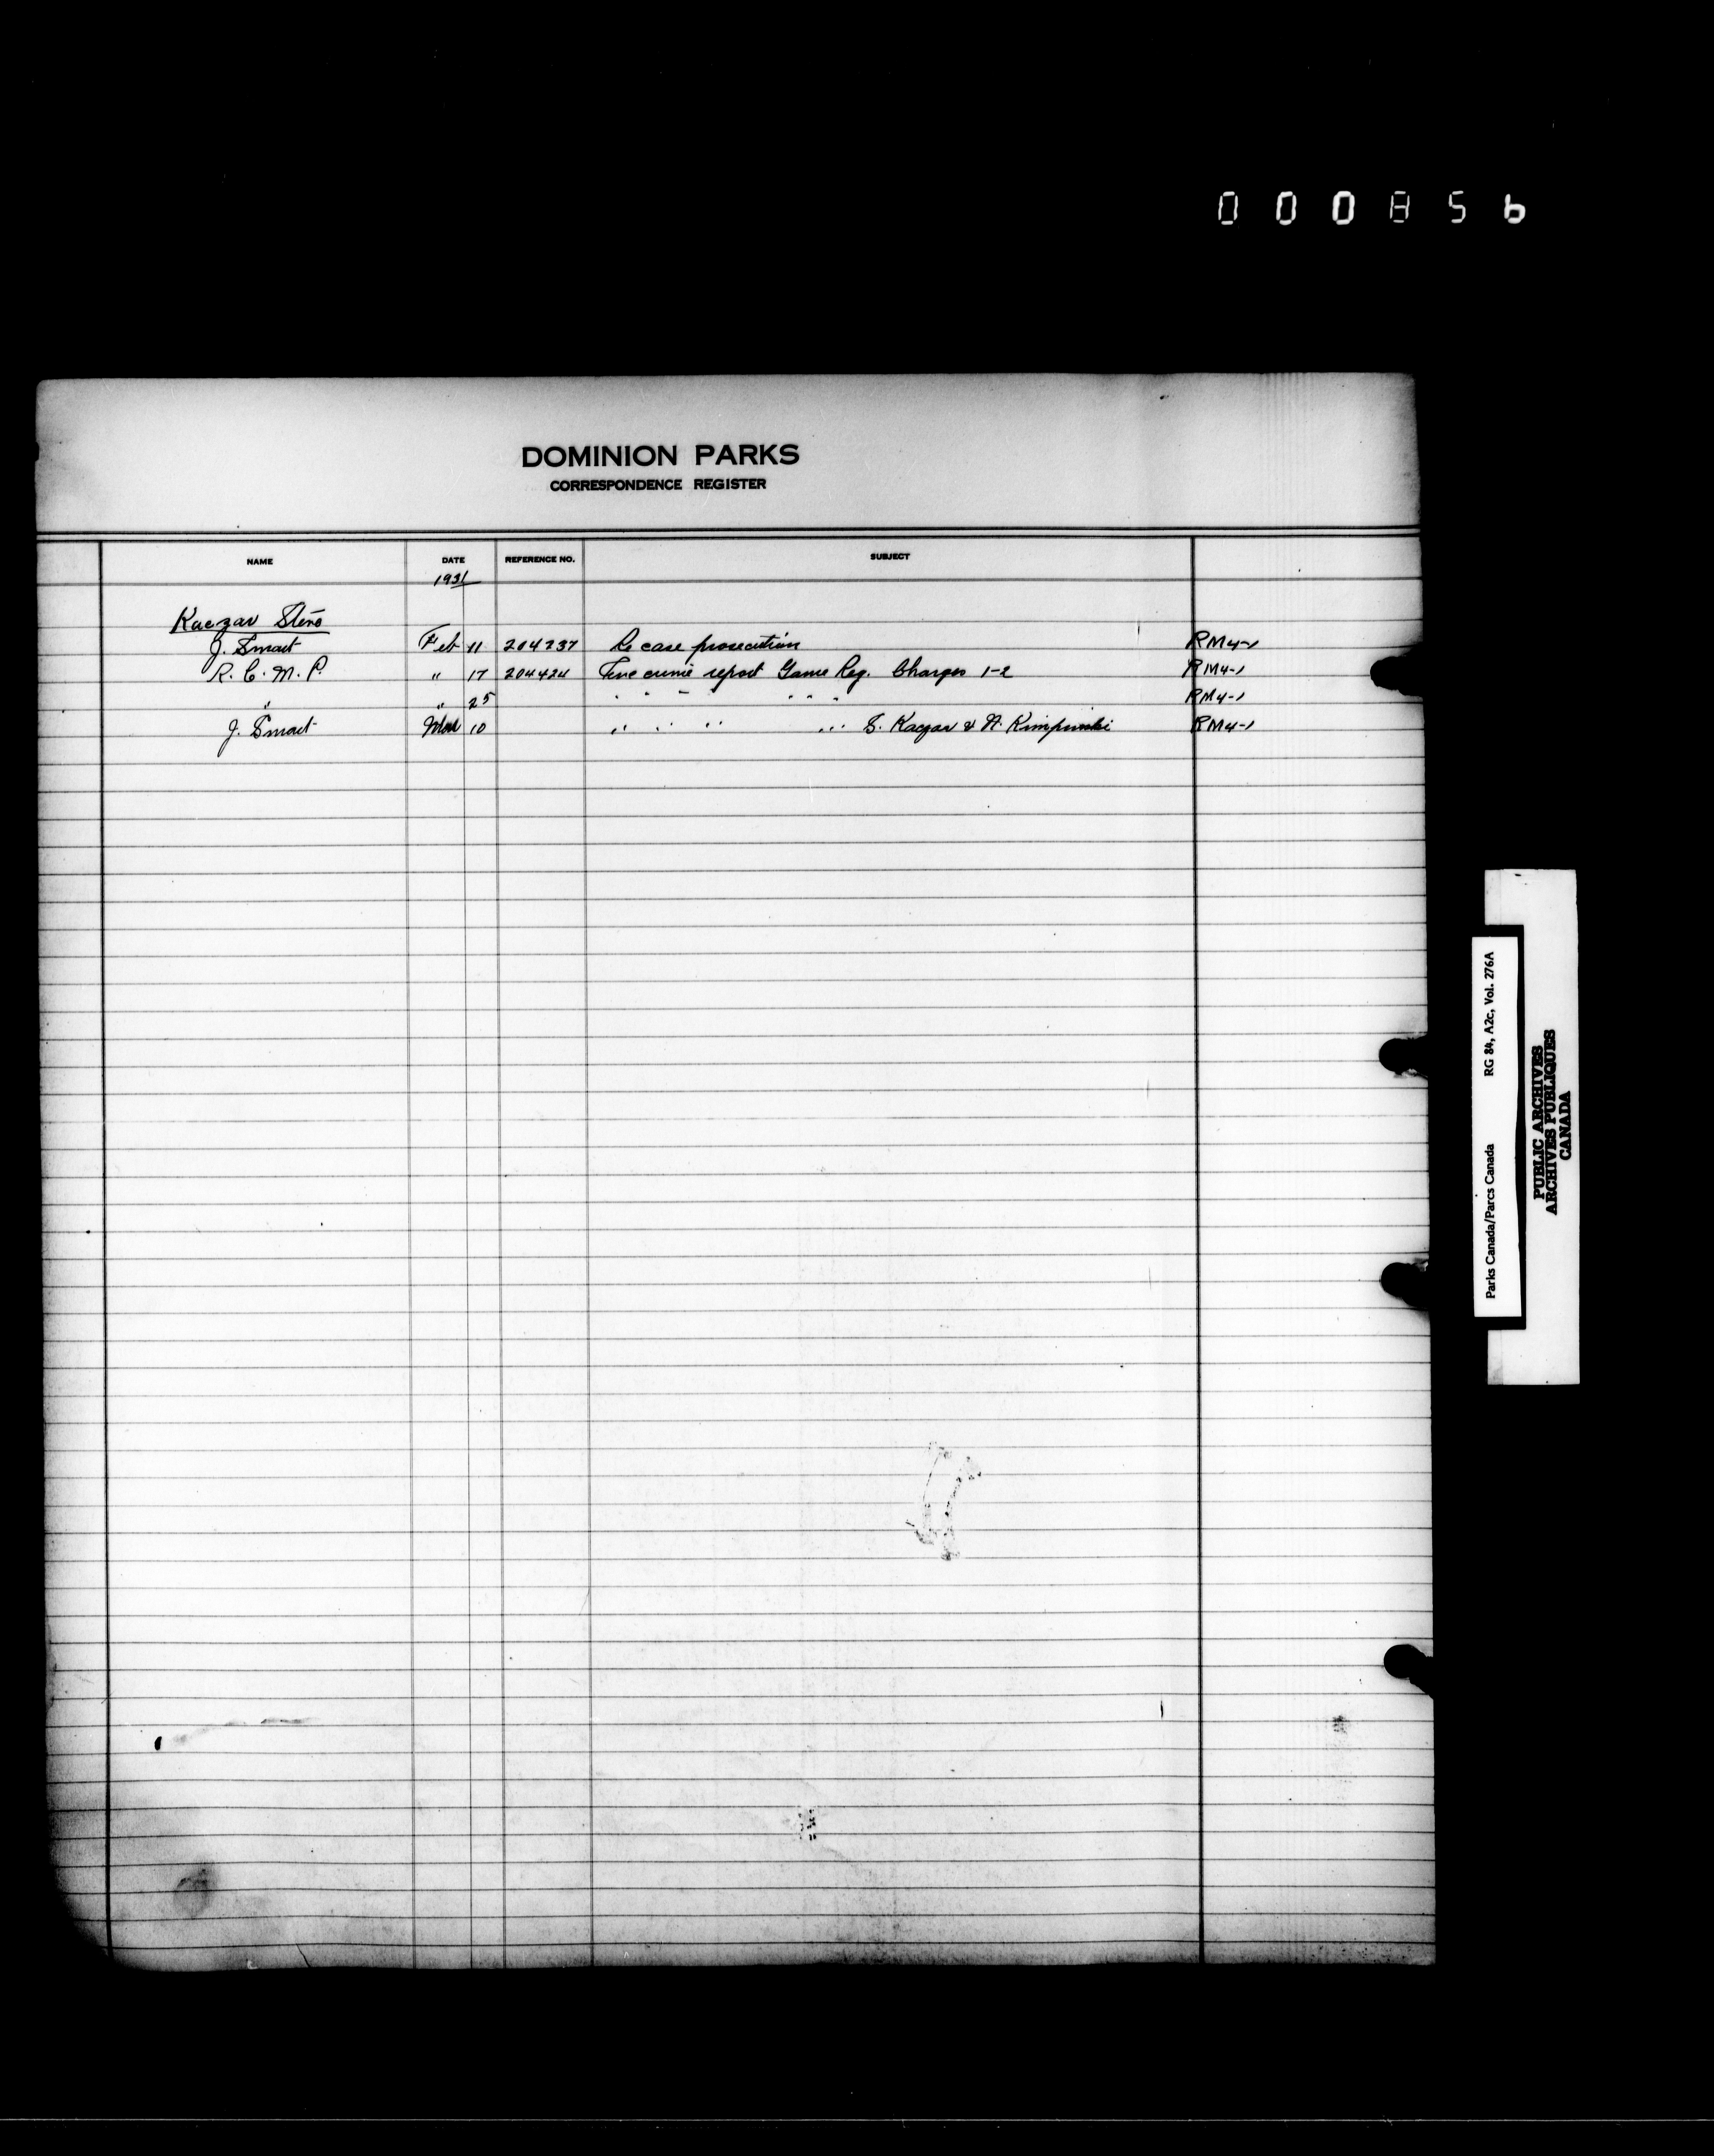 000856
DOMINION PARKS
CORRESPONDENCE REGISTER
NAME DATE REFERENCE NO. SUBJECT
1931
Kaczar Steve
J. Smart Feb 11 204237 Re case prosecution RM4-1
R. C. M. P. " 17 204424 Fine crime report Game Reg. Charges 1-2 RM4-1
" " 25 " " " " " " " RM4-1
J. Smart Mar 10 " " " " S. Kaczar & RM4-1
Parks Canada/Parcs Canada RG 84, A2c, Vol. 276A
PUBLIC ARCHIVES
ARCHIVES PUBLIQUES
CANADA